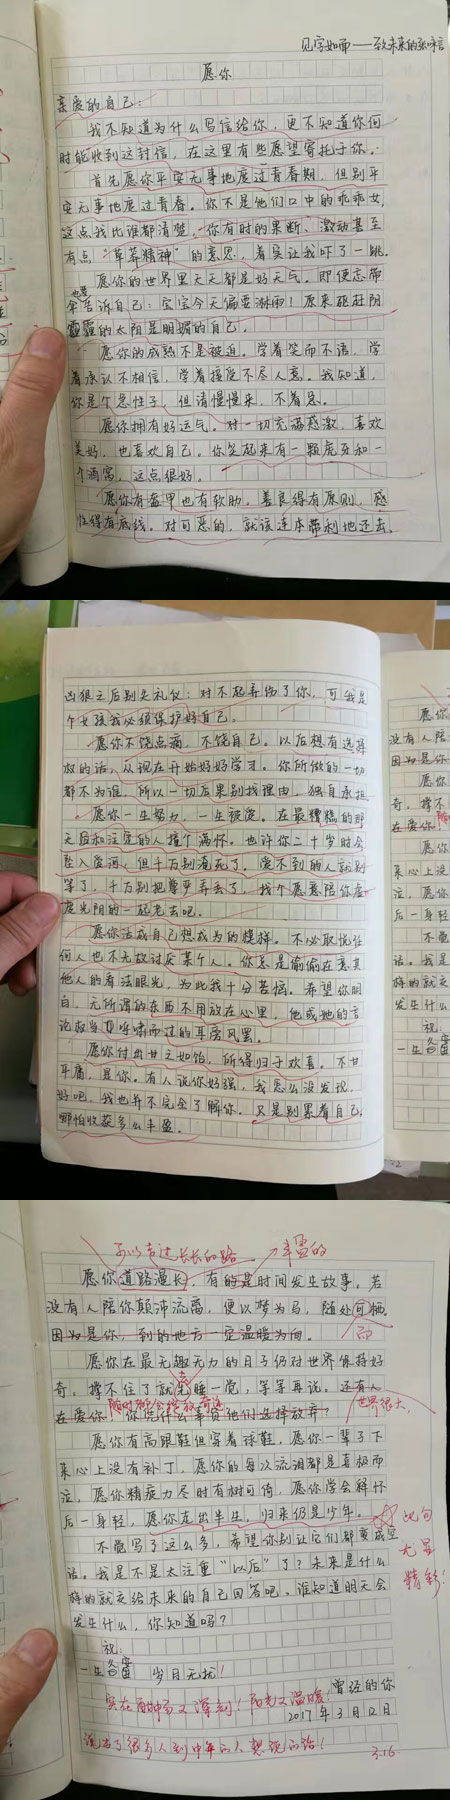 见字如面——致未来的张
愿你
亲爱的自己：
我不知道为什么写信给你，更不知道你何
时能收到这封信，在这里有些愿望寄托于你。
首先愿你平安无事地度过青春期，但别平
安无事地度过青春。你不是他们口中的乖乖女，
这点我比谁都清楚，你有时的果断、激动甚至
有点“草莽精神”的意思，着实让我吓了一跳。
愿你的世界里天天都是好天气。即使忘带
伞也要告诉自己：宝宝今天偏要淋雨！原来驱赶阴
霾的太阳是明媚的自己。
愿你的成熟不是被迫。学着笑而不语，学
着承认不相信，学着接受不尽人意。我知道，
你是个急性子，但请慢慢来，不着急。
愿你拥有好运气。对一切充满感激，喜欢
美好，也喜欢自己。你笑起来有一颗虎牙和一
个酒窝，这点很好。
愿你有盔甲也有软肋。善良得有原则，感
性得有底线。对可恶的，就该连本带利地还击。
凶狠之后别失礼仪：对不起弄伤了你，可我是
个女孩我必须保护好自己。
愿你不饶点滴，不饶自己。以后想有选择
权的话，从现在开始好好学习。你所做的一切
都不为谁，所以一切后果别找理由，独自承担。
愿你一生努力，一生被爱。在最糟糕的那
天后和注定的人撞个满怀。也许你二十岁时会
坠入爱河，但千万别淹死了。爱不到的人就别
等了，千万别把尊严弄丢了，找个愿意陪你虚
度光阴的一起老去吧。
愿你活成自己想成为的模样。不必取悦任
何人也不无故讨厌某个人。你总是偷偷在意其
他人的看法眼光，为此我十分苦恼。希望你明
白，无所谓的东西不用放在心里，他或她的言
论权当呼啸而过的耳旁风罢。
愿你付出甘之如饴，所得归于欢喜。不甘
平庸，是你。有人说你好强，我怎么没发现。
好吧，我也并不完全了解你。只是别累着自己，
哪怕收获多么丰盈。
可以考虑长长的路
丰盈的
愿你道路漫长，有的是时间发生故事。若
没有人陪你颠沛流离，便以梦为马，随处可栖。
因为是你，到的地方一定温暖为向。
愿你在最无趣无力的日子仍对世界保持好
奇。撑不住了就去睡一觉，等等再说。还有人
世界很大，
随时都会绽放奇迹
在爱你，你凭什么辜负他们选择放弃？
愿你有高跟鞋但穿着球鞋，愿你一辈子下
来心上没有补丁，愿你的每次流泪都是喜极而
泣，愿你精疲力尽时有树可倚，愿你学会释怀
后一身轻，愿你走出半生，归来仍是少年。
此句
尤显
精彩！
不觉写了这么多，希望你别让它们都变成空
话。我是不是太注重“以后”了？未来是什么
样的就交给未来的自己回答吧。谁知道明天会
发生什么，你知道吗？
祝：
一生 岁月无扰！
曾经的你
2017年3月12日
实在 又深刻！阳光又温暖！
说出了很多人到中年的人想说的话！
3.16